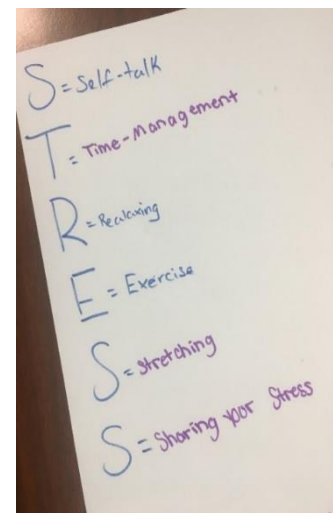 S = Self-talk
T = Time-Management
R = Realaxing
E = Exercise
S = Stretching
S = Sharing your Stress